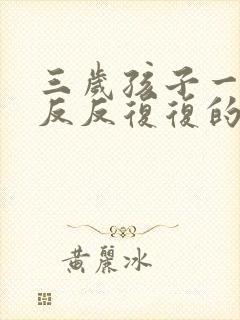 三歲孩子一
反反復復的
黃麗冰